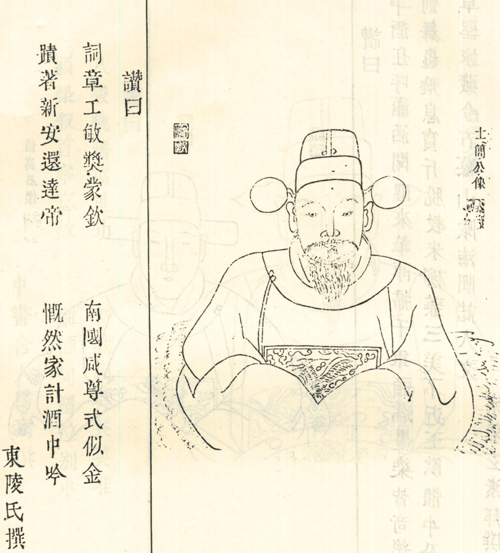 士簡公像
讚曰
詞章工敏獎蒙欽 南國咸尊式似金
蹟著新安還達帝 慨然家計酒中吟
東陵氏撰